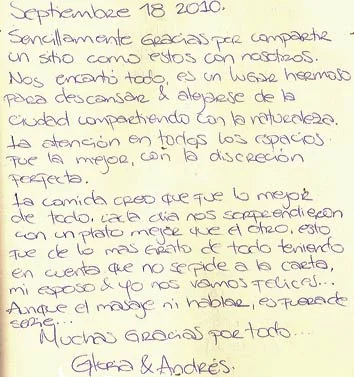 Septiembre 18 2010.
Sencillamente Gracias por compartir
un sitio como estos con nosotros.
Nos encantó todo, es un lugar hermoso
para descansar & alejarse de la
ciudad compartiendo con la naturaleza.
La atención en todos los espacios
fue la mejor, con la discreción
perfecta.
La comida creo que fue lo mejor
de todo, cada dia nos sorprendieron
con un plato mejor que el otro, esto
fue de lo mas grato de todo teniendo
en cuenta que no se pide a la carta,
mi esposo & yo nos vamos felices...
Aunque el masaje ni hablar, es fuera de
serie...
Muchas Gracias por todo...
Gloria & Andrés.